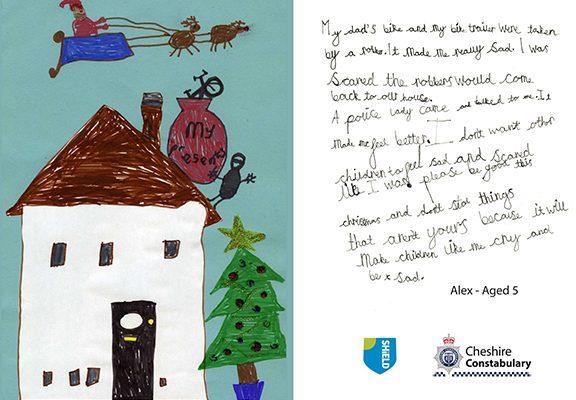 My
presents
My dad's bike and my bike trailer were taken
by a robber. It made me really sad. I was
scared the robbers would come
back to our house.
A police lady came and talked to me. It
made me feel better. I dont want other
children to feel sad and scared
like I was please be good this
christmas and dont steal things
that arent yours because it will
make children like me cry and
be sad.
Alex - Aged 5
SHIELD
Cheshire
Constabulary